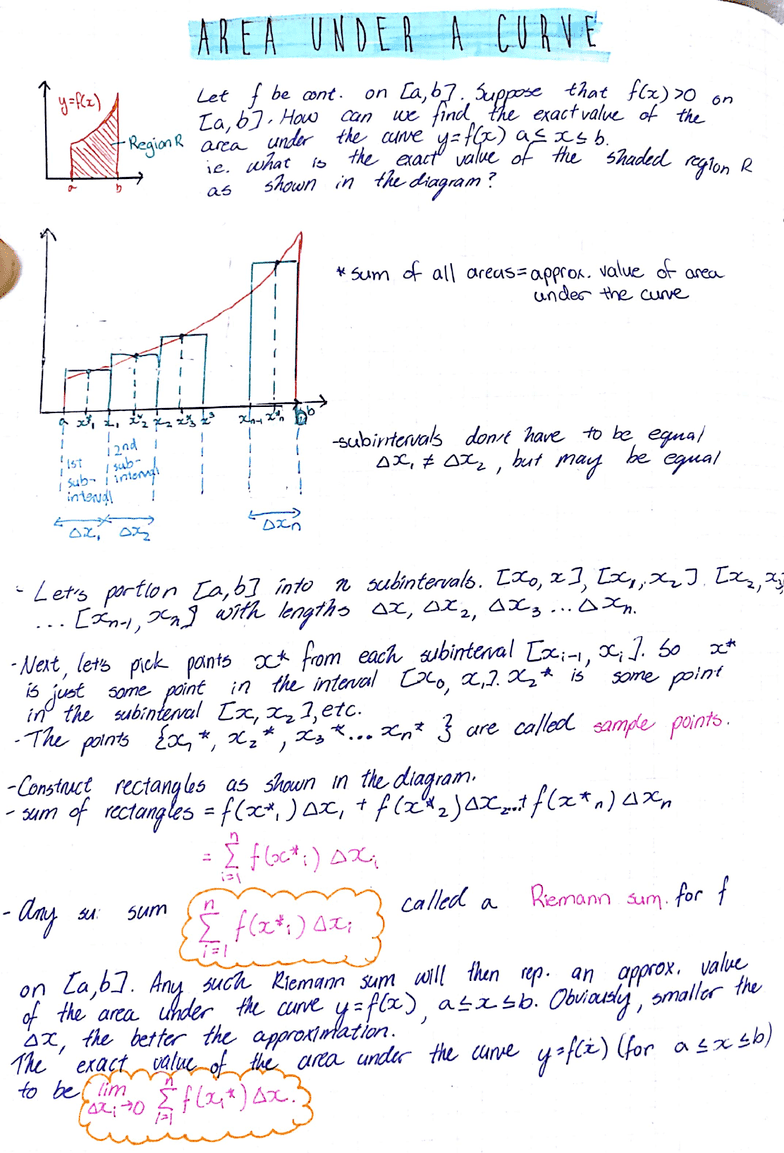 AREA UNDER A CURVE
y=f(x)
Region R
a b
Let f be cont. on [a,b]. Suppose that f(x)>0 on
[a,b]. How can we find the exact value of the
area under the curve y=f(x) a≤x≤b.
ie. what is the exact value of the shaded region R
as shown in the diagram?
* sum of all areas = approx. value of area
under the curve
a x*₁ x₁ x*₂ x₂ x*₃ x³ xₙ₋₁ x*ₙ b
-subintervals don't have to be equal
Δx₁ ≠ Δx₂, but may be equal
1st sub-interval
2nd sub-interval
Δx₁ Δx₂ Δxₙ
- Let's partion [a,b] into n subintervals. [x₀, x], [x₁, x₂] [x₂, x₃
... [xₙ₋₁, xₙ] with lengths Δx, Δx₂, Δx₃ ... Δxₙ.
-Next, lets pick points x* from each subinterval [xᵢ₋₁, xᵢ]. So x*
is just some point in the interval [x₀, x₁]. x₂* is some point
in the subinterval [x, x₂], etc.
-The points {x₁*, x₂*, x₃*... xₙ*} are called sample points.
-Construct rectangles as shown in the diagram.
- sum of rectangles = f(x*₁)Δx₁ + f(x*₂)Δx₂...+ f(x*ₙ)Δxₙ
= n Σ i=1 f(x*ᵢ) Δxᵢ
- Any su: sum n Σ i=1 f(x*ᵢ) Δxᵢ called a Riemann sum. for f
on [a,b]. Any such Riemann sum will then rep. an approx. value
of the area under the curve y=f(x), a≤x≤b. Obviously, smaller the
Δx, the better the approximation.
The exact value of the area under the curve y=f(x) (for a≤x≤b)
to be lim Δxᵢ→0 n Σ i=1 f(xᵢ*) Δx.